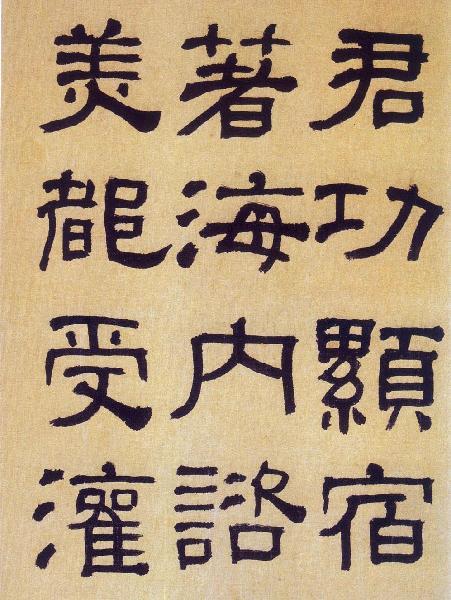 君功顯宿
著海内諮
羙都受灌